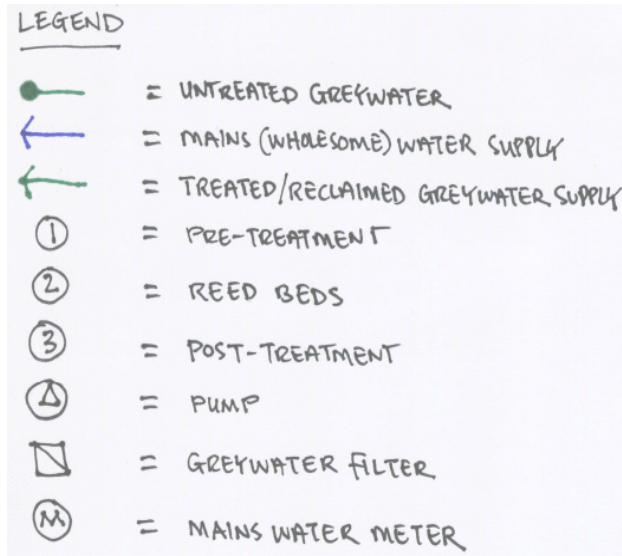 LEGEND
= UNTREATED GREYWATER
= MAINS (WHOLESOME) WATER SUPPLY
= TREATED/RECLAIMED GREYWATER SUPPLY
1 = PRE-TREATMENT
2 = REED BEDS
3 = POST-TREATMENT
= PUMP
= GREYWATER FILTER
M = MAINS WATER METER